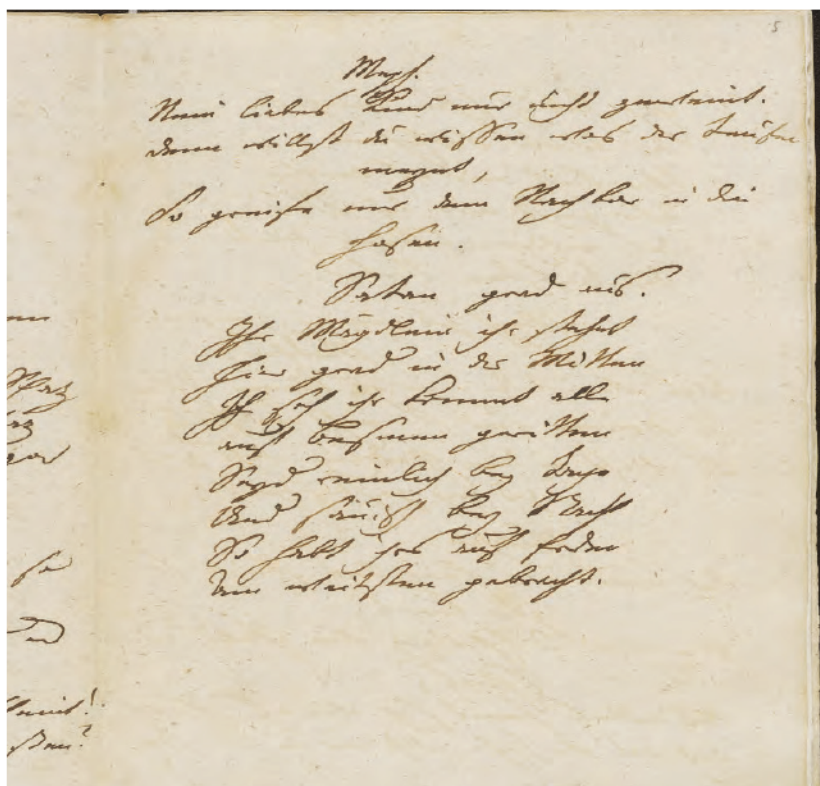 5
Meph.
Nein liebes Kind nur nicht geweint.
denn willst du wissen was der Teufel
meynt,
So greife nur dem Nachbar in die
Hosen.
Satan grad aus.
Ihr Mägdlein ihr stehet
hier grad in der Mitten
Ich seh ihr kommt alle
auf Besmen geritten
Seyd reinlich bey Tage
Und säuisch bey Nacht
So habt ihrs auf Erden
Am weitsten gebracht.